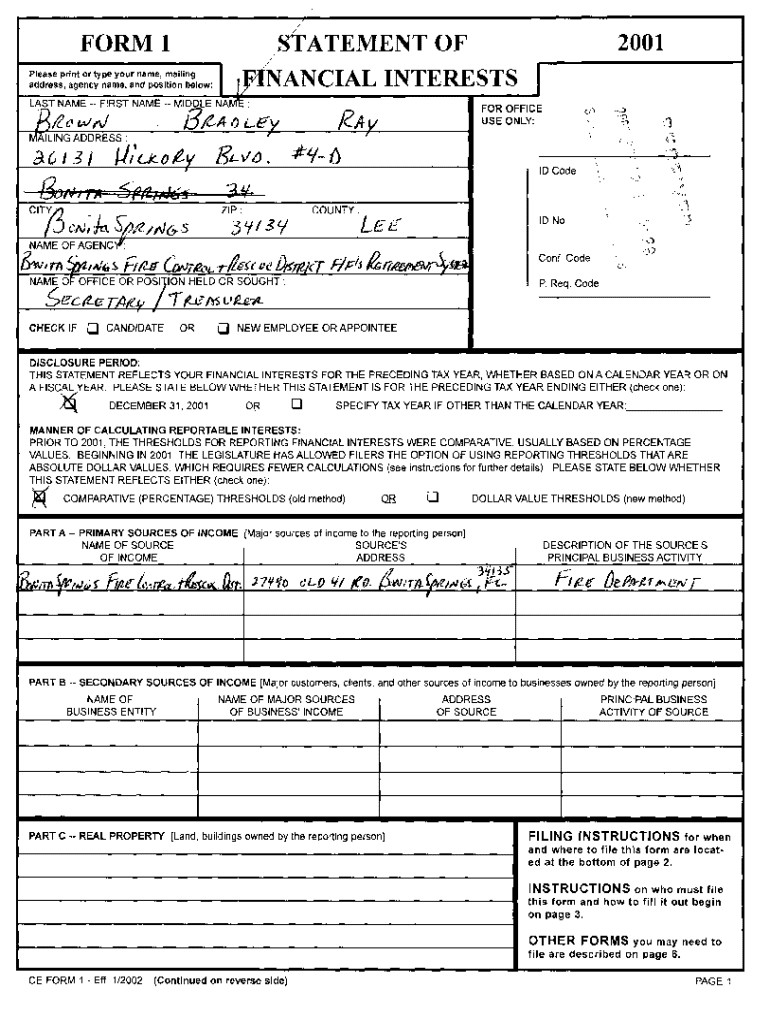 FORM 1 STATEMENT OF 2001
Please print or type your name, mailing
address, agency name, and position below:
FINANCIAL INTERESTS
LAST NAME -- FIRST NAME -- MIDDLE NAME :
BROWN BRADLEY RAY
MAILING ADDRESS :
26131 HICKORY BLVD. #4-D
BONITA SPRINGS 34
CITY ZIP : COUNTY :
Bonita SPRINGS 34134 LEE
NAME OF AGENCY
BONITA SPRINGS FIRE CONTROL + RESCUE DISTRICT F/F'S RETIREMENT SYSTEM
NAME OF OFFICE OR POSITION HELD OR SOUGHT :
SECRETARY / TREASURER
CHECK IF CANDIDATE OR NEW EMPLOYEE OR APPOINTEE
FOR OFFICE
USE ONLY:
ID Code
ID No
Conf Code
P. Req. Code
DISCLOSURE PERIOD:
THIS STATEMENT REFLECTS YOUR FINANCIAL INTERESTS FOR THE PRECEDING TAX YEAR, WHETHER BASED ON A CALENDAR YEAR OR ON
A FISCAL YEAR. PLEASE STATE BELOW WHETHER THIS STATEMENT IS FOR THE PRECEDING TAX YEAR ENDING EITHER (check one):
DECEMBER 31, 2001 OR SPECIFY TAX YEAR IF OTHER THAN THE CALENDAR YEAR:
MANNER OF CALCULATING REPORTABLE INTERESTS:
PRIOR TO 2001, THE THRESHOLDS FOR REPORTING FINANCIAL INTERESTS WERE COMPARATIVE, USUALLY BASED ON PERCENTAGE
VALUES. BEGINNING IN 2001 THE LEGISLATURE HAS ALLOWED FILERS THE OPTION OF USING REPORTING THRESHOLDS THAT ARE
ABSOLUTE DOLLAR VALUES, WHICH REQUIRES FEWER CALCULATIONS (see instructions for further details) PLEASE STATE BELOW WHETHER
THIS STATEMENT REFLECTS EITHER (check one):
COMPARATIVE (PERCENTAGE) THRESHOLDS (old method) OR DOLLAR VALUE THRESHOLDS (new method)
PART A -- PRIMARY SOURCES OF INCOME (Major sources of income to the reporting person]
NAME OF SOURCE SOURCE'S DESCRIPTION OF THE SOURCE'S
OF INCOME ADDRESS PRINCIPAL BUSINESS ACTIVITY
34135
BONITA SPRINGS FIRE CONTROL + RESCUE DIST. 27490 OLD 41 RD. BONITA SPRINGS, FL- FIRE DEPARTMENT
PART B -- SECONDARY SOURCES OF INCOME [Major customers, clients, and other sources of income to businesses owned by the reporting person]
NAME OF NAME OF MAJOR SOURCES ADDRESS PRINCIPAL BUSINESS
BUSINESS ENTITY OF BUSINESS' INCOME OF SOURCE ACTIVITY OF SOURCE
PART C -- REAL PROPERTY [Land, buildings owned by the reporting person]
FILING INSTRUCTIONS for when
and where to file this form are locat-
ed at the bottom of page 2.
INSTRUCTIONS on who must file
this form and how to fill it out begin
on page 3.
OTHER FORMS you may need to
file are described on page 6.
CE FORM 1 - Eff 1/2002 (Continued on reverse side) PAGE 1